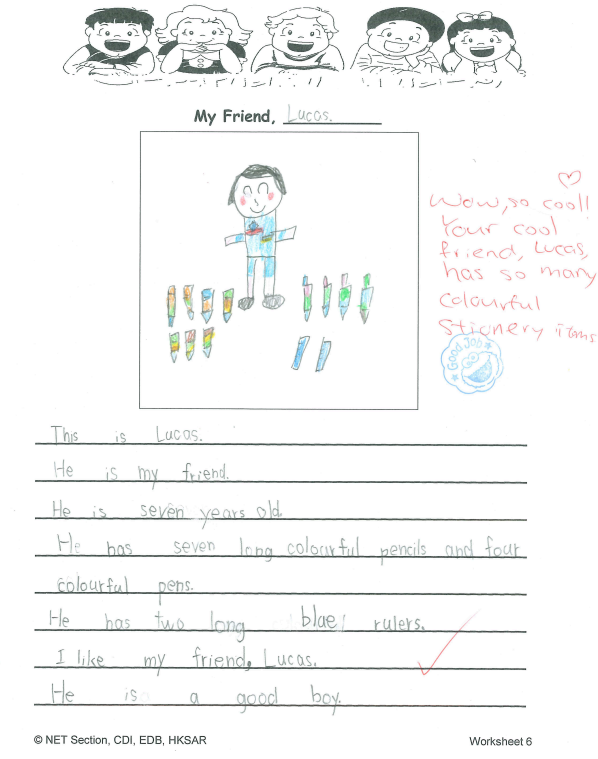 My Friend, Lucas.
Wow, so cool!
Your cool
friend, Lucas,
has so many
colourful
stionery items
Good Job
This is Lucas.
He is my friend.
He is seven years old.
He has seven long colourful pencils and four
colourful pens.
He has two long blue rulers.
I like my friend, Lucas.
He is a good boy.
© NET Section, CDI, EDB, HKSAR
Worksheet 6